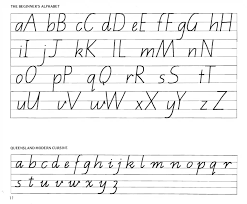 THE BEGINNER'S ALPHABET
aA bB cC dD eE fF gG hH
iI jJ kK lL mM nN
oO pP qQ rR sS tT
uU vV wW xX yY zZ
QUEENSLAND MODERN CURSIVE
a b c d e f g h i j k l m n o p q r
s t u v w x y z